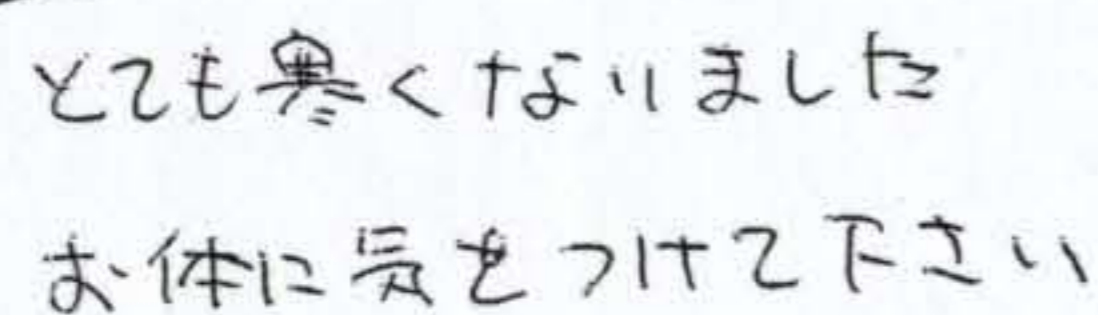 とても寒くなりました
お体に気をつけて下さい